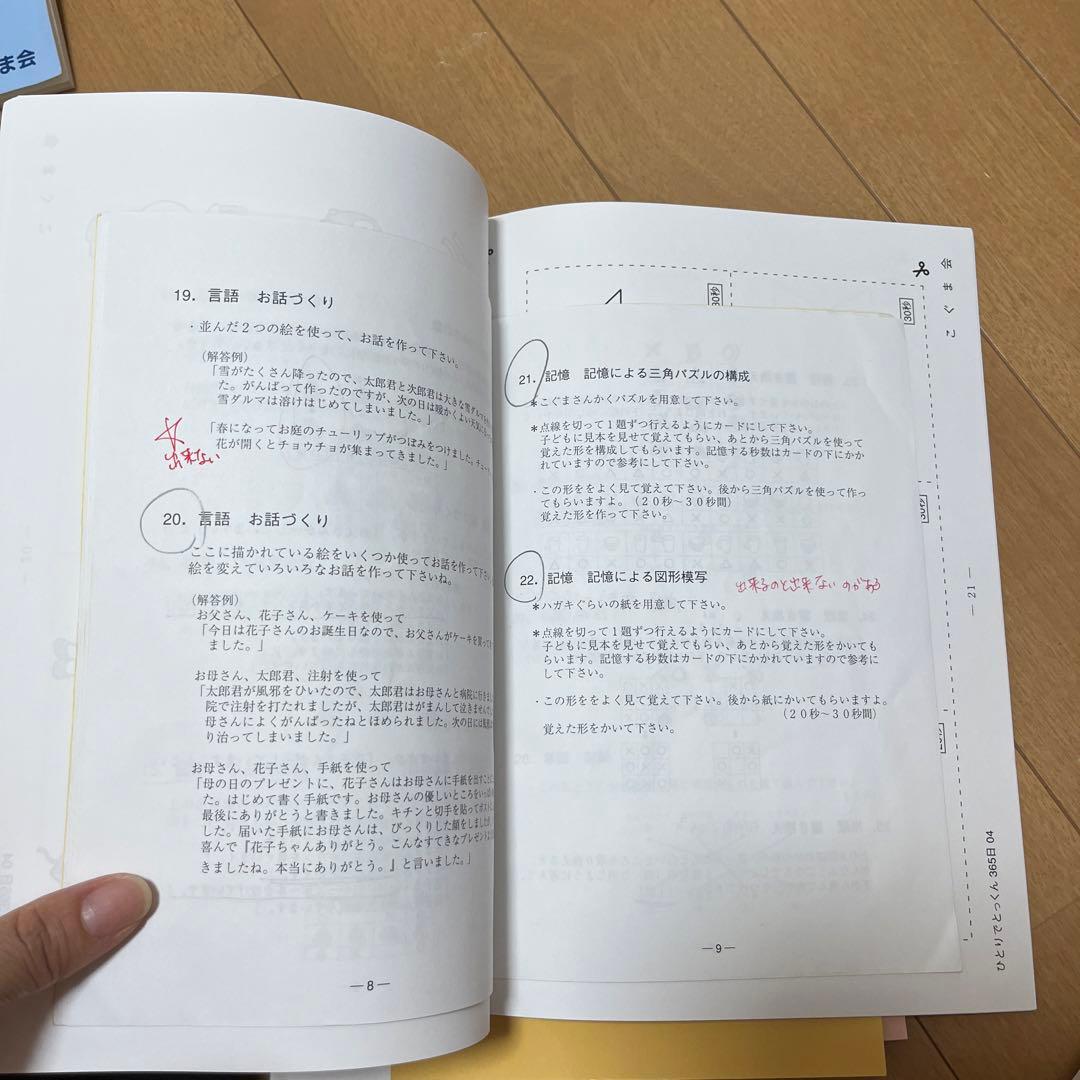 ま会
19．言語　お話づくり
・並んだ２つの絵を使って、お話を作って下さい。
（解答例）
「雪がたくさん降ったので、太郎君と次郎君は大きな雪ダルマを
た。がんばって作ったのですが、次の日は暖かくよい天気に
雪ダルマは溶けはじめてしまいました。」
「春になってお庭のチューリップがつぼみをつけました。チュー
花が開くとチョウチョが集まってきました。」
出来ない
20．言語　お話づくり
ここに描かれている絵をいくつか使ってお話を作って下さい
絵を変えていろいろなお話を作って下さいね。
（解答例）
お父さん、花子さん、ケーキを使って
「今日は花子さんのお誕生日なので、お父さんがケーキを買って
ました。」
お母さん、太郎君、注射を使って
「太郎君が風邪をひいたので、太郎君はお母さんと病院に行きま
院で注射を打たれましたが、太郎君はがまんして泣きません
母さんによくがんばったねとほめられました。次の日には風邪
り治ってしまいました。」
お母さん、花子さん、手紙を使って
「母の日のプレゼントに、花子さんはお母さんに手紙を出すことに
た。はじめて書く手紙です。お母さんの優しいところをいっぱ
最後にありがとうと書きました。キチンと切手を貼ってポスト
した。届いた手紙にお母さんは、びっくりした顔をしましたが、
喜んで『花子ちゃんありがとう。こんなすてきなプレゼント
きましたね。本当にありがとう。』と言いました。」
―8―
30秒
30秒
21．記憶　記憶による三角パズルの構成
＊こぐまさんかくパズルを用意して下さい。
＊点線を切って１題ずつ行えるようにカードにして下さい。
子どもに見本を見せて覚えてもらい、あとから三角パズルを使って
覚えた形を構成してもらいます。記憶する秒数はカードの下にかか
れていますので参考にして下さい。
・この形ををよく見て覚えて下さい。後から三角パズルを使って作っ
てもらいますよ。（２０秒～３０秒間）
覚えた形を作って下さい。
22．記憶　記憶による図形模写
出来るのと出来ないのがある
＊ハガキぐらいの紙を用意して下さい。
＊点線を切って１題ずつ行えるようにカードにして下さい。
子どもに見本を見せて覚えてもらい、あとから覚えた形をかいても
らいます。記憶する秒数はカードの下にかかれていますので参考に
して下さい。
・この形ををよく見て覚えて下さい。後から紙にかいてもらいますよ。
（２０秒～３０秒間）
覚えた形をかいて下さい。
―9―
こぐま会
―21―
ひとりでとっくん 365日 04